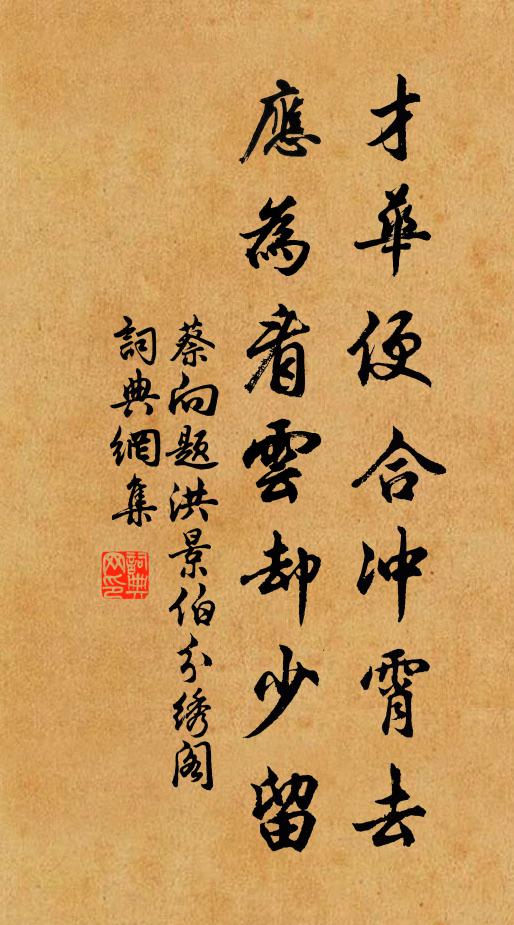 才華便合冲霄去
應為看雲却少留
蔡向題洪景伯分綉阁
詞典網集
詞典
网印